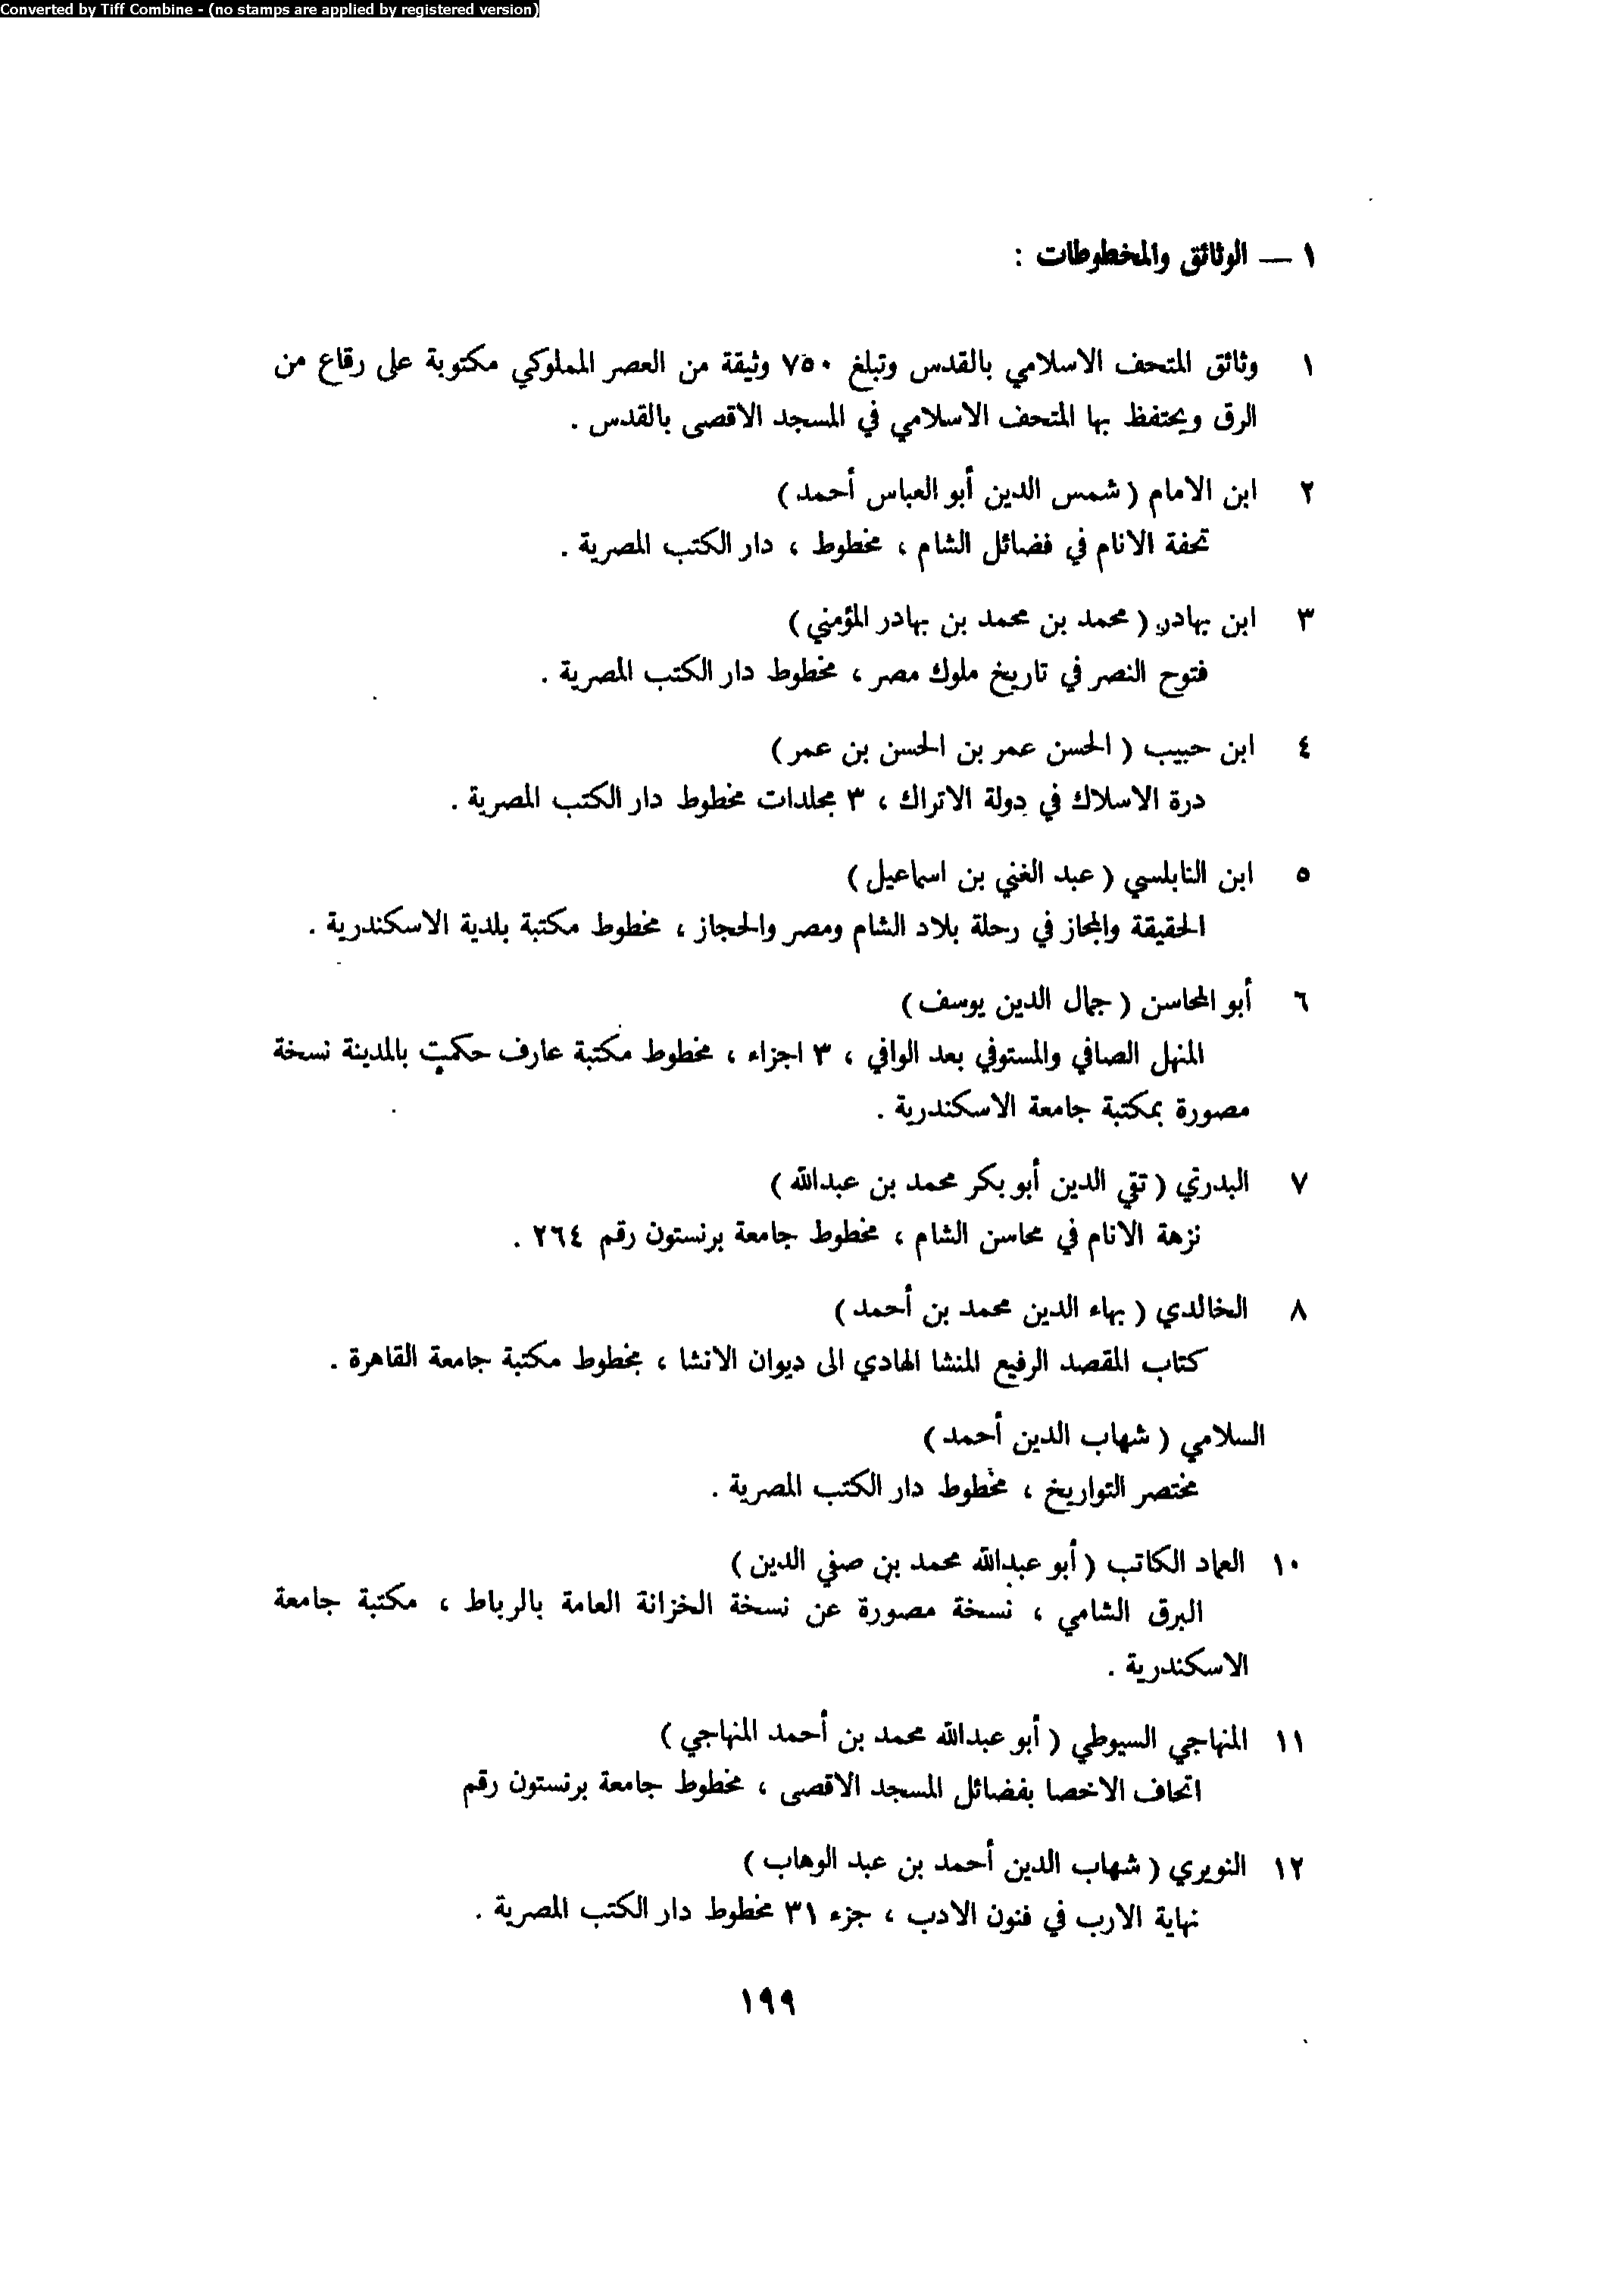 Converted by Tiff Combine - (no stamps are applied by registered version)
١ — الوثائق والمخطوطات :
١ وثائق المتحف الاسلامي بالقدس وتبلغ ٧٥٠ وثيقة من العصر المملوكي مكتوبة على رقاع من
الرق ويحتفظ بها المتحف الاسلامي في المسجد الاقصى بالقدس .
٢ ابن الامام ( شمس الدين أبو العباس أحمد )
تحفة الانام في فضائل الشام ، مخطوط ، دار الكتب المصرية .
٣ ابن بهادر ( محمد بن محمد بن بهادر المؤمني )
فتوح النصر في تاريخ ملوك مصر ، مخطوط دار الكتب المصرية .
٤ ابن حبيب ( الحسن عمر بن الحسن بن عمر )
درة الاسلاك في دولة الاتراك ، ٣ مجلدات مخطوط دار الكتب المصرية .
٥ ابن النابلسي ( عبد الغني بن اسماعيل )
الحقيقة والمجاز في رحلة بلاد الشام ومصر والحجاز ، مخطوط مكتبة بلدية الاسكندرية .
٦ أبو المحاسن ( جمال الدين يوسف )
المنهل الصافي والمستوفي بعد الوافي ، ٣ اجزاء ، مخطوط مكتبة عارف حكمت بالمدينة نسخة
مصورة بمكتبة جامعة الاسكندرية .
٧ البدري ( تقي الدين أبو بكر محمد بن عبدالله )
نزهة الانام في محاسن الشام ، مخطوط جامعة برنستون رقم ٢٦٤ .
٨ الخالدي ( بهاء الدين محمد بن أحمد )
كتاب المقصد الرفيع المنشا الهادي الى ديوان الانشا ، مخطوط مكتبة جامعة القاهرة .
السلامي ( شهاب الدين أحمد )
مختصر التواريخ ، مخطوط دار الكتب المصرية .
١٠ العماد الكاتب ( أبو عبدالله محمد بن صفي الدين )
البرق الشامي ، نسخة مصورة عن نسخة الخزانة العامة بالرباط ، مكتبة جامعة
الاسكندرية .
١١ المنهاجي السيوطي ( أبو عبدالله محمد بن أحمد المنهاجي )
اتحاف الاخصا بفضائل المسجد الاقصى ، مخطوط جامعة برنستون رقم
١٢ النويري ( شهاب الدين أحمد بن عبد الوهاب )
نهاية الارب في فنون الادب ، جزء ٣١ مخطوط دار الكتب المصرية .
١٩٩